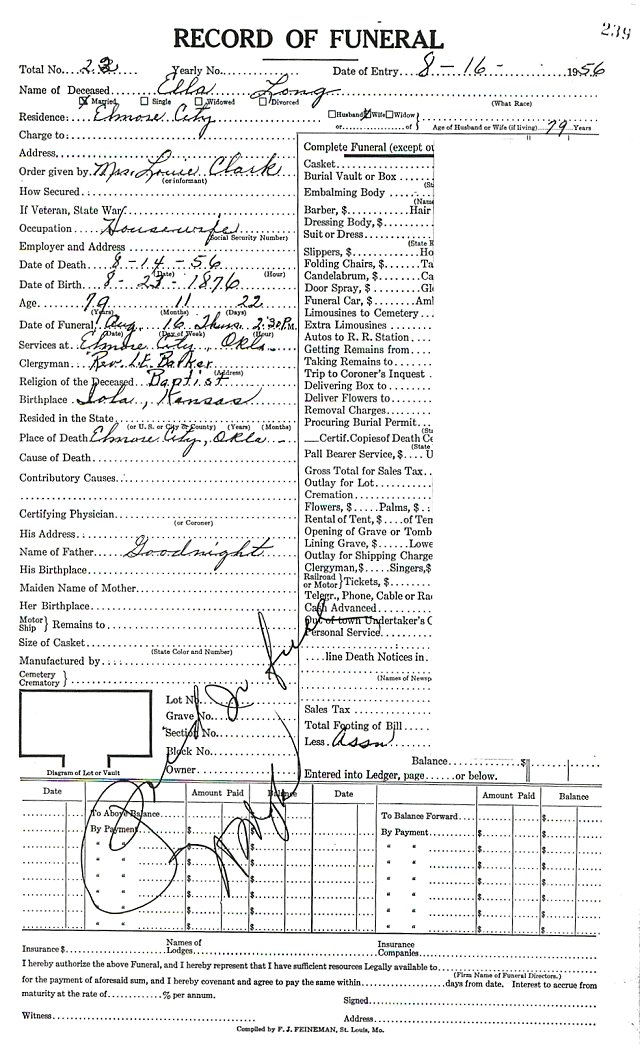 239
RECORD OF FUNERAL
Total No. 23 Yearly No. Date of Entry 8-16- 1956
Name of Deceased Ella Long
Married Single Widowed Divorced (What Race)
Residence: Elmore City Husband Wife Widow or of Age of Husband or Wife (if living) 79 Years
Charge to:
Address
Order given by Mrs. Louise Clark
(or informant)
How Secured
If Veteran, State War
Occupation Housewife
(Social Security Number)
Employer and Address
Date of Death 8-14-56
(Date) (Hour)
Date of Birth 8-23-1876
Age 79 11 22
(Years) (Months) (Days)
Date of Funeral Aug 16 Thurs. 2:30 P.M.
(Date) (Day of Week) (Hour)
Services at Elmore City, Okla.
Clergyman Rev. Barker
(Address)
Religion of the Deceased Baptist
Birthplace Iola, Kansas
Resided in the State
(or U. S. or City or County) (Years) (Months)
Place of Death Elmore City, Okla.
Cause of Death
Contributory Causes
Certifying Physician
(or Coroner)
His Address
Name of Father Goodnight
His Birthplace
Maiden Name of Mother
Her Birthplace
Motor Ship } Remains to
Size of Casket
(State Color and Number)
Manufactured by
Cemetery Crematory }
Lot No.
Grave No.
Section No.
Block No.
Owner
Diagram of Lot or Vault
Complete Funeral (except ou
Casket
Burial Vault or Box
(St
Embalming Body
(Name
Barber, $ Hair
Dressing Body, $
Suit or Dress
(State K
Slippers, $ Ho
Folding Chairs, $ Ta
Candelabrum, $ Ca
Door Spray, $ Gl
Funeral Car, $ Aml
Limousines to Cemetery
Extra Limousines
Autos to R. R. Station
Getting Remains from
Taking Remains to
Trip to Coroner's Inquest
Delivering Box to
Deliver Flowers to
Removal Charges
Procuring Burial Permit
(St
Certif. Copies of Death Ce
(State
Pall Bearer Service, $ U
Gross Total for Sales Tax
Outlay for Lot
Cremation
Flowers, $ Palms, $
Rental of Tent, $ of Ten
Opening of Grave or Tomb
Lining Grave, $ Lowe
Outlay for Shipping Charge
Clergyman, $ Singers, $
Railroad or Motor } Tickets, $
Telegr., Phone, Cable or Rad
Cash Advanced
Out of town Undertaker's C
Personal Service
line Death Notices in
(Names of Newsp
Sales Tax
Total Footing of Bill
Less Assn
Balance $
Entered into Ledger, page or below.
Paid In Full
Date Amount Paid Balance Date Amount Paid Balance
To Above Balance $ To Balance Forward $
By Payment $ $ By Payment $ $
" " $ $ " " $ $
" " $ $ " " $ $
" " $ $ " " $ $
" " $ $ " " $ $
" " $ $ " " $ $
Insurance $ Names of Lodges Insurance Companies
I hereby authorize the above Funeral, and I hereby represent that I have sufficient resources Legally available to
(Firm Name of Funeral Directors.)
for the payment of aforesaid sum, and I hereby covenant and agree to pay the same within days from date. Interest to accrue from
maturity at the rate of % per annum. Signed
Witness Address
Compiled by F. J. FEINEMAN, St. Louis, Mo.